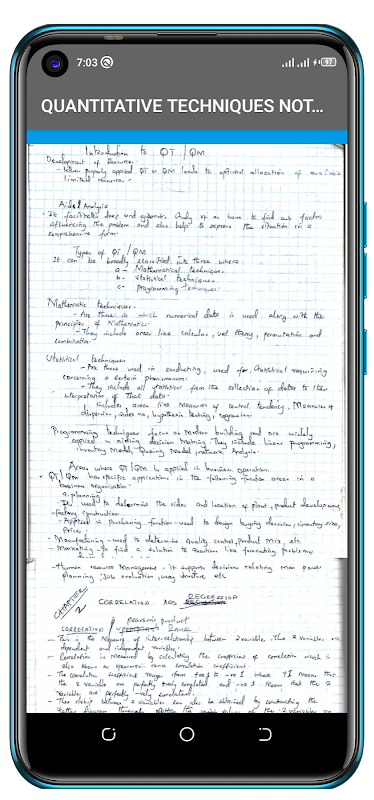 7:03
97
QUANTITATIVE TECHNIQUES NOT...
Introduction to QT / QM
Development of Resource.
- When properly applied QT or QM leads to optimal allocation of available
limited resources.
Aids Analysis
- It facilitates deep and systematic study of an issue to find out factors
influencing the problem and also help to express the situation in a
comprehensive form
Types of QT / QM
It can be broadly classified into three where
a - Mathematical techniques
b - Statistical techniques
c - Programming Techniques
Mathematic techniques.
- Are those in which numerical data is used along with the
principles of Mathematics
- They include areas like calculus, set theory, permutation and
combination
Statistical techniques
- Are those used in conducting, used for Statistical
concerning a certain phenomenon.
- They include all statistical from the collection of data to the
interpretation of that data
Includes areas like Measures of central tendency, Measures of
dispersion, index no, hypothesis testing, regression
Programming techniques focus on Modern building and are widely
applied in aiding decision Making. They include linear programming,
inventory Model, Queuing Model, network Analysis
Areas where QT/QM is applied in business operation.
- QT/QM has specific applications in the following function areas in a
business organisation
a. planning
- It used to determine the sizes and location of plant, product development,
factory construction
- Applied in purchasing function - used to design buying decision, inventory size,
prices
- Manufacturing - used to determine quality control, product mix, etc
- Marketing - to find a solution to questions like forecasting problems
- Human resources Management - it supports decisions relating man power
planning, Job evaluation, wage structure etc
CHAPTER 2
CORRELATION AND REGRESSION
CORRELATION / pearsonic product
Rank
- This is the Measure of inter-relationship between 2 variables. The 2 variables are
dependent and independent variables
- Correlation is measured by calculating the coefficient of correlation which is
also known as spearman's rank correlation coefficient
- The correlation coefficient range from +ve 1 to -ve 1 where +1 Means that
the 2 variable are perfectly +vely correlated and -ve 1 Means that the 2
variables are perfectly -vely correlated
- The relship between 2 variables can also be obtained by constructing the
scatter diagram